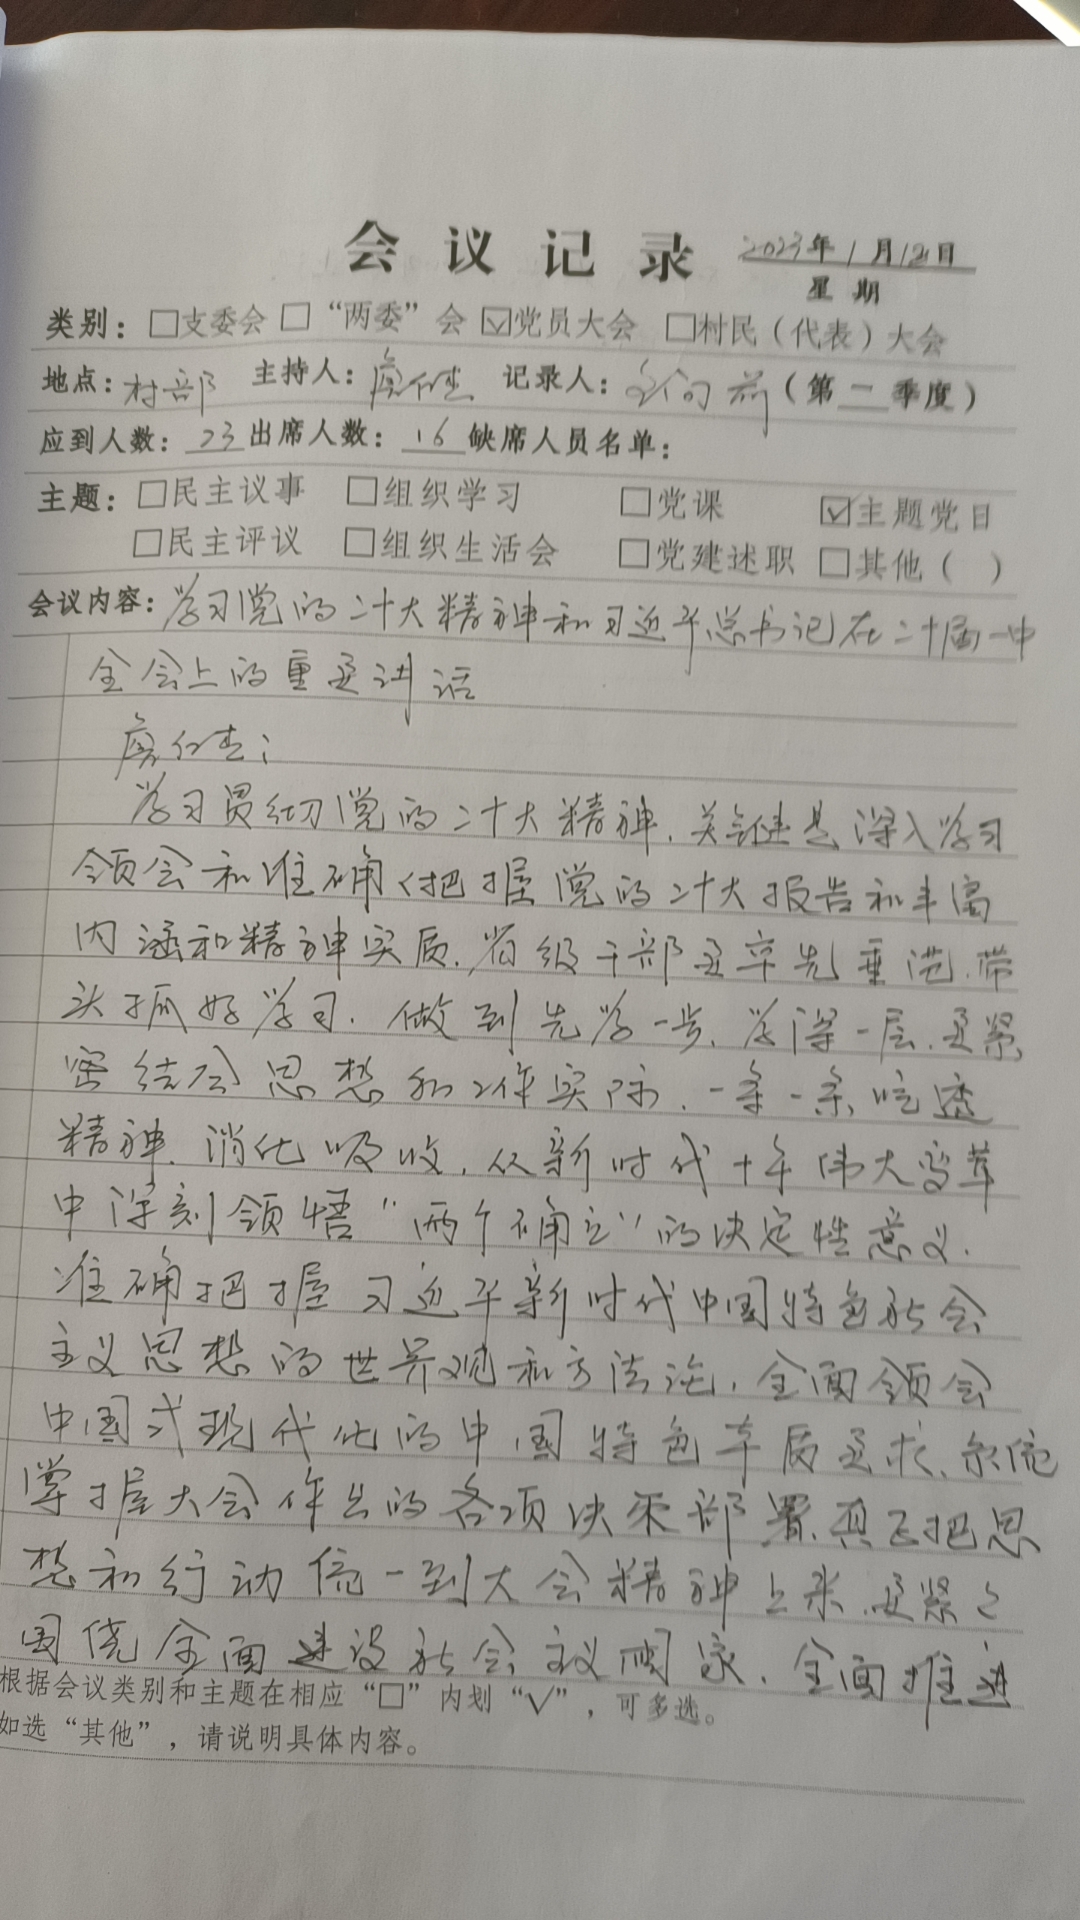 会议记录 2023年1月12日
星期
类别：□支委会 □“两委”会 ☑党员大会 □村民（代表）大会
地点：村部 主持人： 记录人： （第二季度）
应到人数：23 出席人数：16 缺席人员名单：
主题：□民主议事 □组织学习 □党课 ☑主题党日
□民主评议 □组织生活会 □党建述职 □其他（ ）
会议内容：学习党的二十大精神和习近平总书记在二十届一中
全会上的重要讲话
学习贯彻党的二十大精神，关键是深入学习
领会和准确把握党的二十大报告和丰富
内涵和精神实质，省级干部要率先垂范，带
头抓好学习，做到先学一步、学深一层，要紧
密结合思想和工作实际，一条一条吃透
精神、消化吸收，从新时代十年伟大变革
中深刻领悟“两个确立”的决定性意义，
准确把握习近平新时代中国特色社会
主义思想的世界观和方法论，全面领会
中国式现代化的中国特色本质要求，系统
掌握大会作出的各项决策部署，真正把思
想和行动统一到大会精神上来，要紧紧
围绕全面建设社会主义国家、全面推进
根据会议类别和主题在相应“□”内划“√”，可多选。
如选“其他”，请说明具体内容。